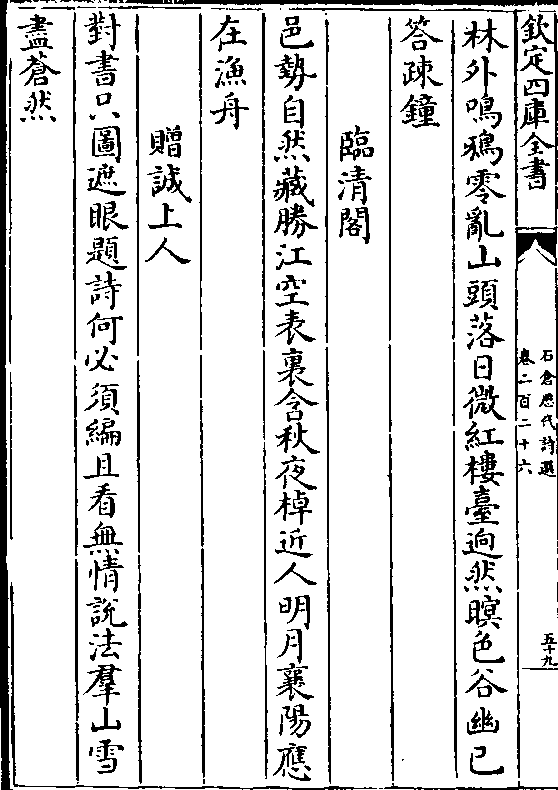 欽定四庫全書
石倉歷代詩選
卷二百二十六
五十九
林外鳴鵶零亂山頭落日微紅樓臺逈然暝色谷幽已
答疎鐘
臨清閣
邑勢自然藏勝江空表裏含秋夜棹近人明月襄陽應
在漁舟
贈誠上人
對書只圖遮眼題詩何必須編且看無情說法羣山雪
盡蒼然